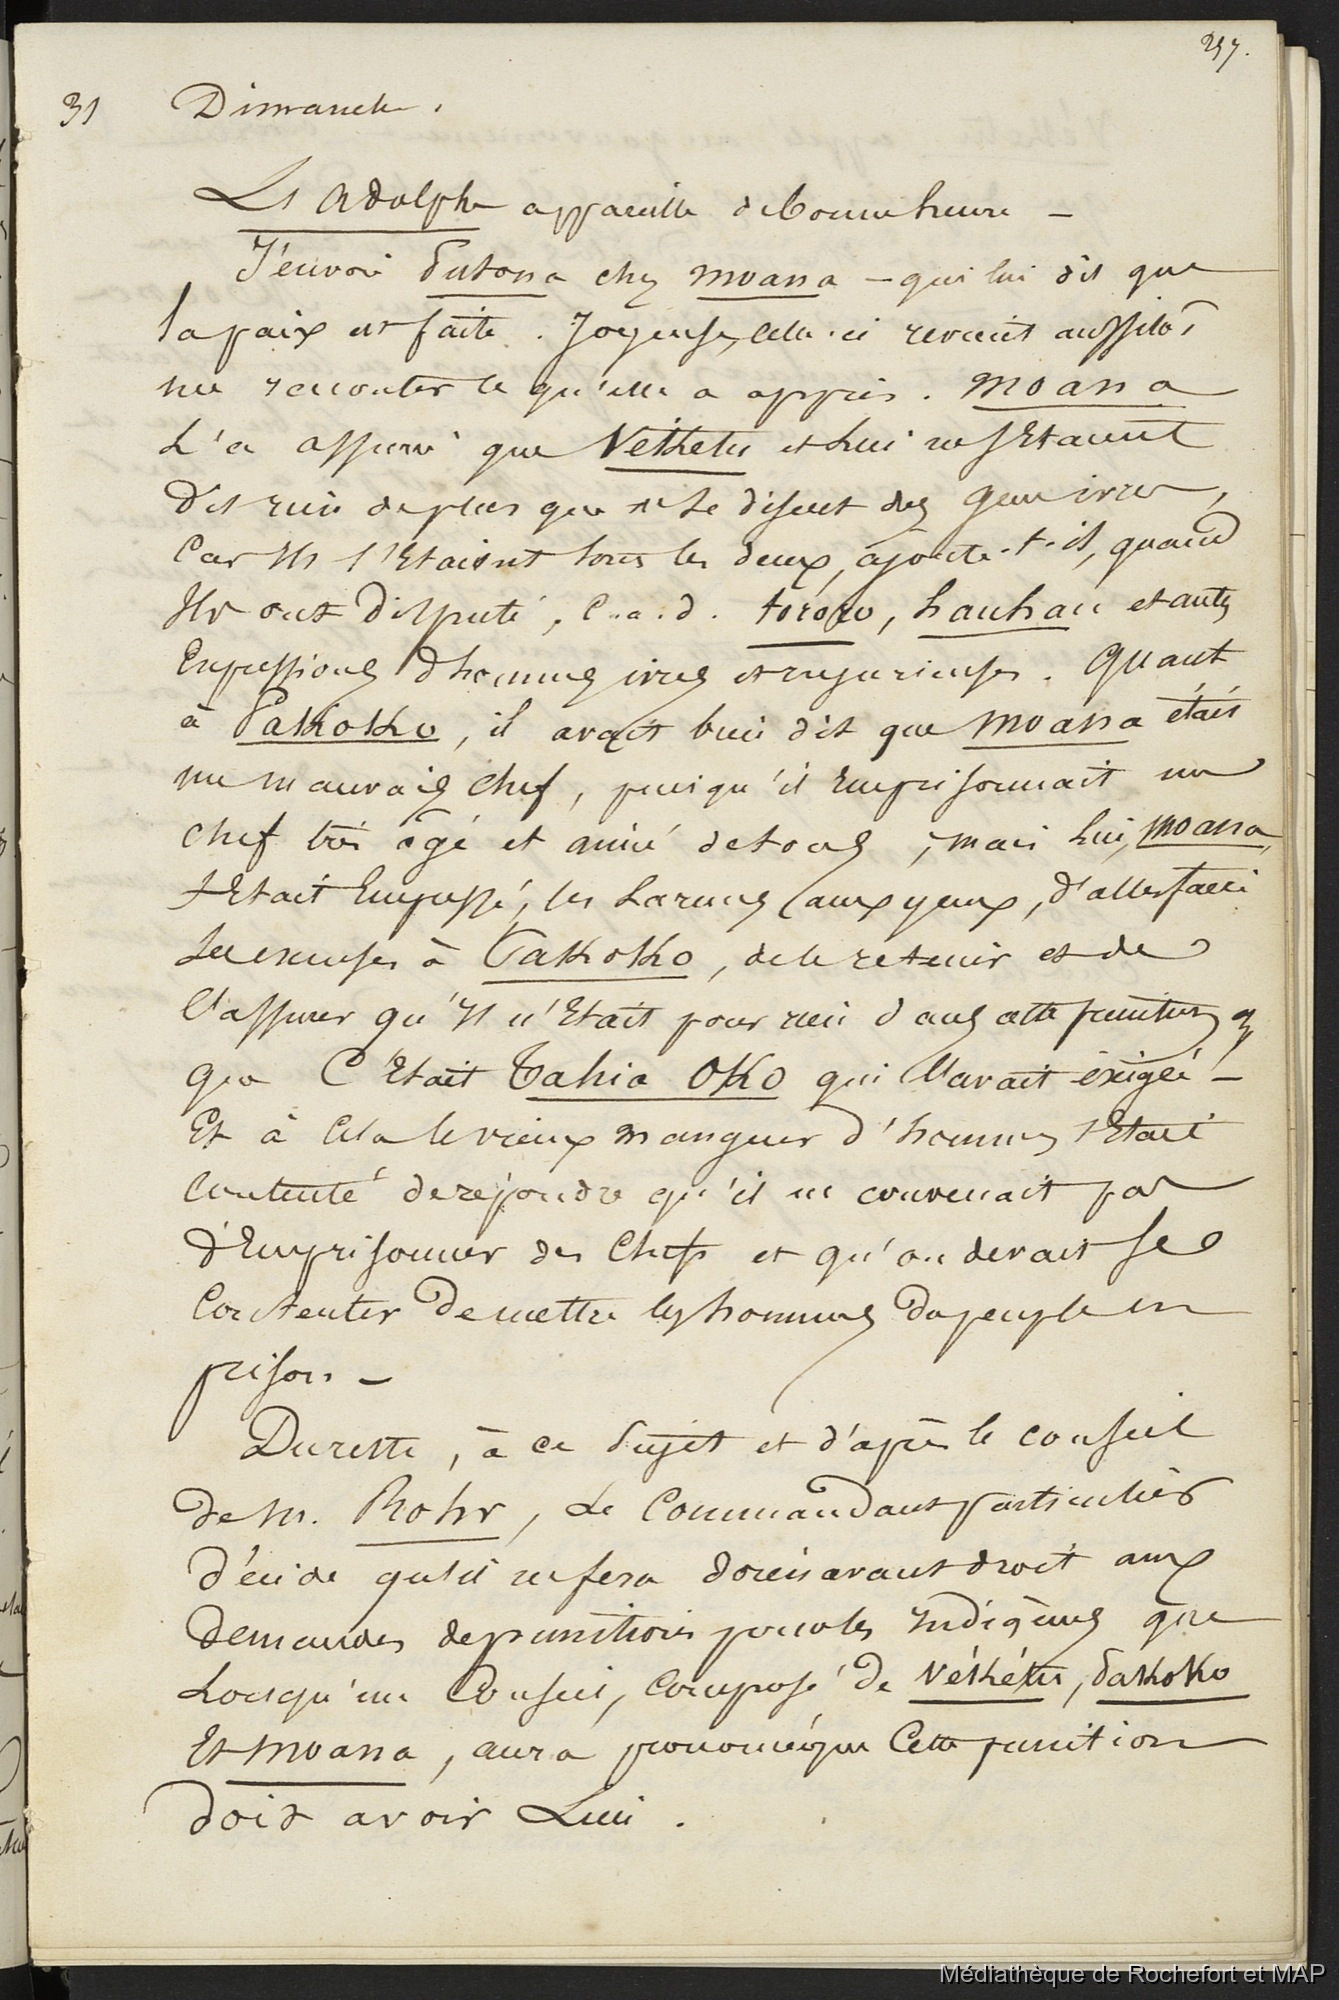 297.
31 Dimanche.
L'Adolphe appareille de bonne heure –
J'envoie Putona chez Moana – qui lui dit que
la paix est faite. Joyeuse, celle-ci revient aussitôt
me raconter ce qu'elle a appris. Moana
l'a assuré que Vékétu et lui ne s'étaient
dit rien de plus que ce se disent des gens ivres,
car ils l'étaient tous les deux, ajoute-t-il, quand
ils ont disputé, c.a.d. tororo, hauhau et autres
expressions d'hommes ivres et injurieuses. Quant
à Pakoko, il avait bien dit que Moana était
un mauvais chef, puisqu'il emprisonnait un
chef très âgé et aimé de tous ; mais lui, Moana,
s'était empressé, les larmes aux yeux, d'aller faire
ses excuses à Pakoko, de le retenir et de
l'assurer qu'il n'était pour rien dans cette punition &
que c'était Tahia Oko qui l'avait éxigée –
Et à cela le vieux mangeur d'hommes s'était
contenté de répondre qu'il ne convenait pas
d'emprisonner des chefs et qu'on devait se
contenter de mettre les hommes du peuple en
prison –
Du reste, à ce sujet et d'après le conseil
de M. Rohr, le Commandant particulier
décide qu'il ne fera dorénavant droit aux
demandes de punitions pour les indigènes que
lorsqu'un Conseil, composé de Vékétu, Pakoko
et Moana, aura prononcé que cette punition
doit avoir lieu.
Médiathèque de Rochefort et MAP